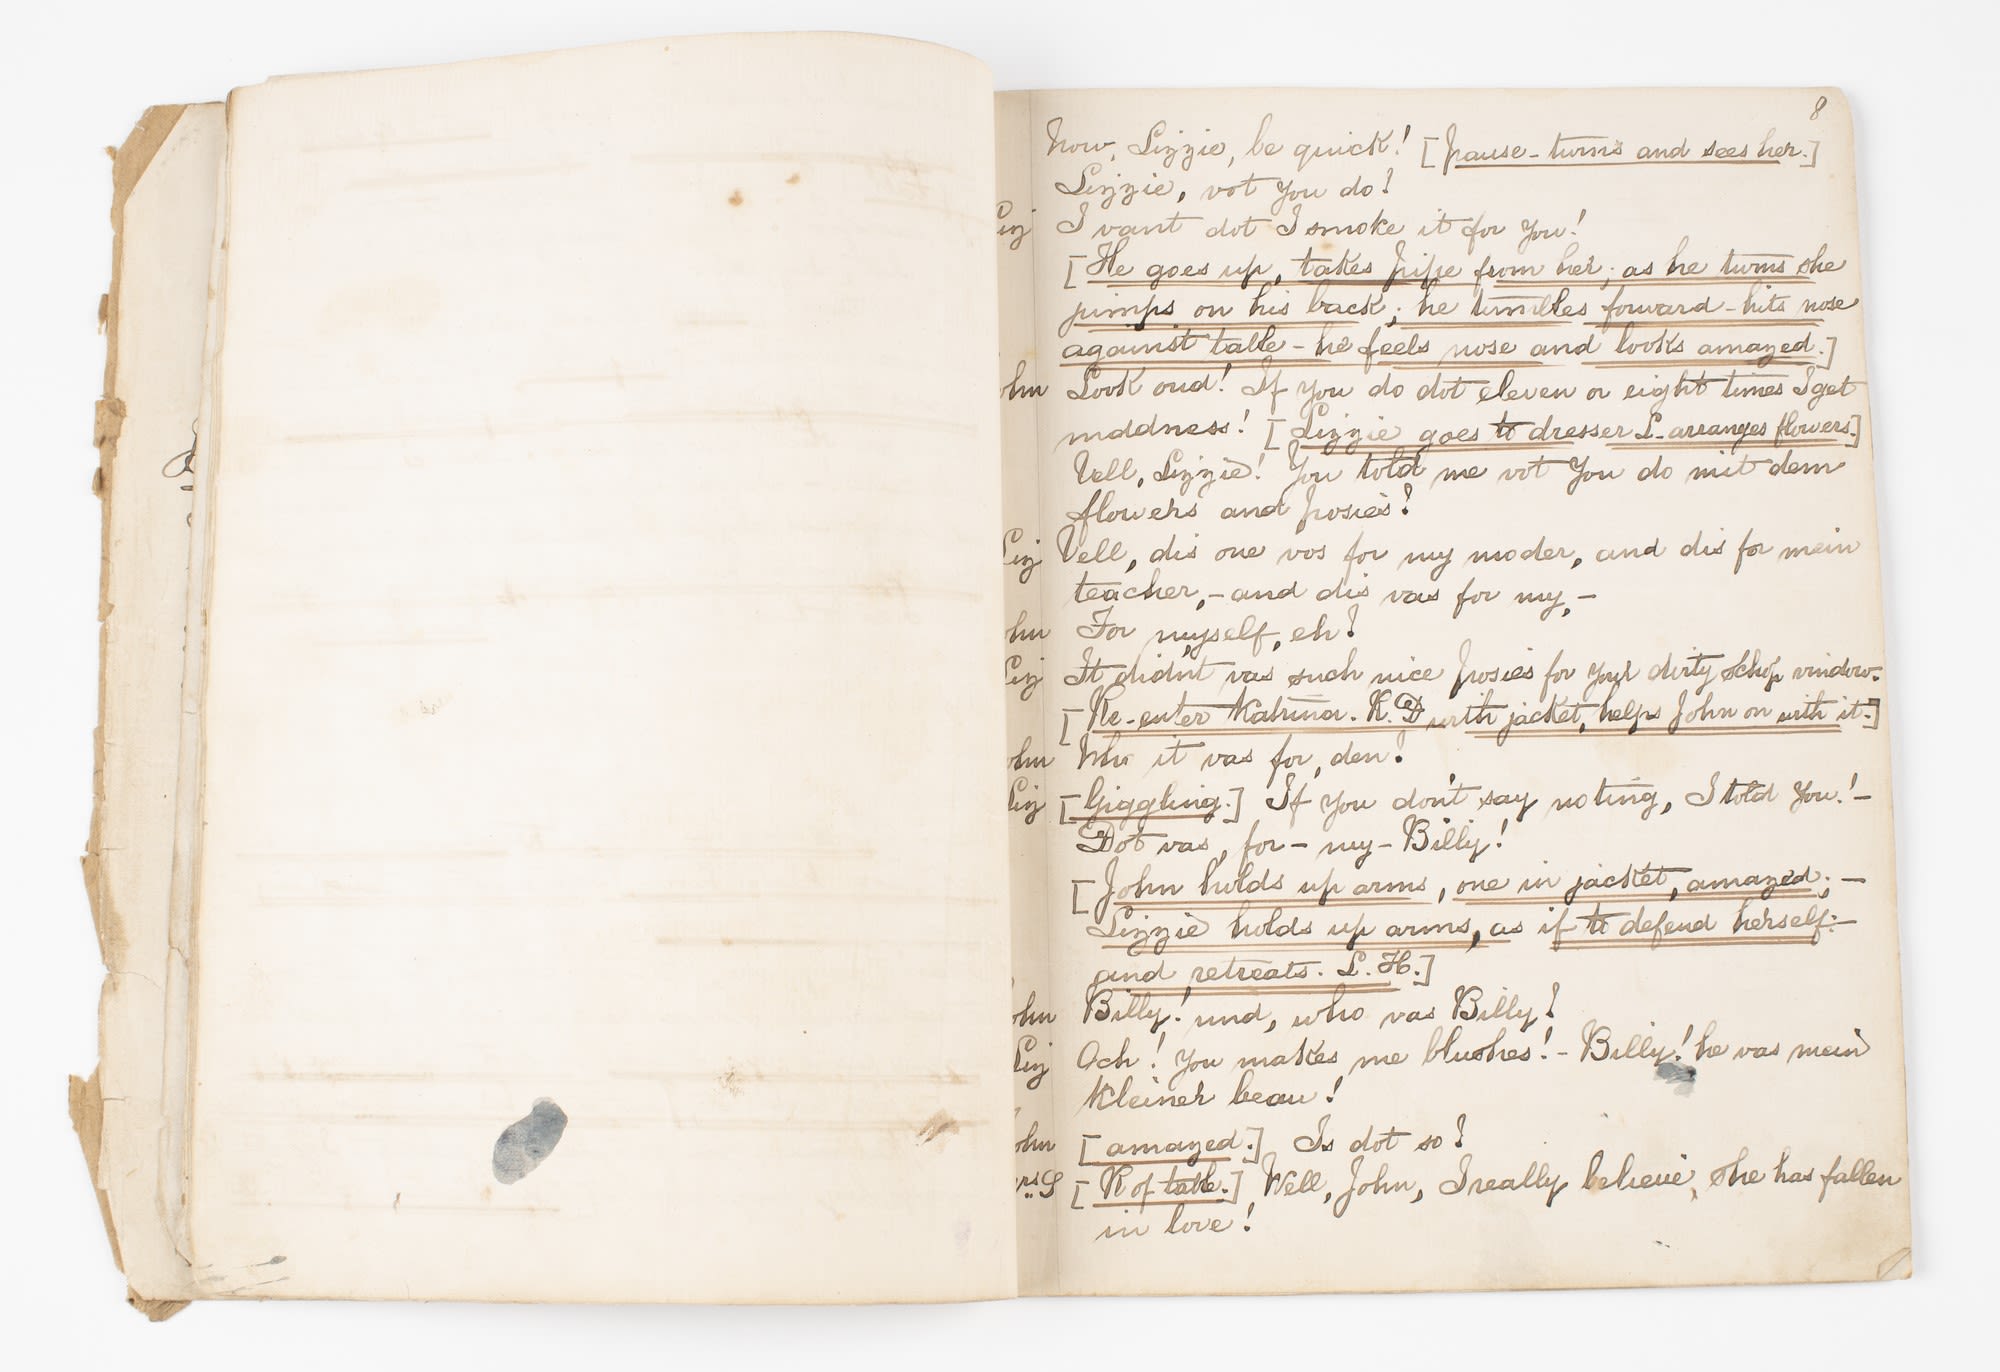 8
Now, Lizzie, be quick! [pause - turns and sees her.]
Lizzie, vot you do?
Liz I vant dot I smoke it for you!
[He goes up, takes pipe from her; as he turns she
jumps on his back; he tumbles forward - hits nose
against table - he feels nose and looks amazed.]
ohn Look oud! If you do dot eleven or eight times I get
maddness! [Lizzie goes to dresser L. arranges flowers.]
Vell, Lizzie! You told me vot you do mit dem
flowers and posies?
Liz Vell, dis one vos for my moder, and dis for mein
teacher, - and dis vas for my, -
ohn For myself, eh?
Liz It didn't vas such nice posies for your dirty schop vindow.
[Re-enter Katrina. R. D with jacket, helps John on with it.]
ohn Who it vas for, den?
Liz [Giggling.] If you don't say noting, I told you! -
Dot vas, for - my - Billy!
[John holds up arms, one in jacket, amazed; -
Lizzie holds up arms, as if to defend herself -
and retreats. L. H.]
ohn Billy! und, who vas Billy?
Liz Och! You makes me blushes! - Billy! he vas mein
kleiner beau!
ohn [amazed.] Is dot so?
rs S [R of table.] Well, John, I really believe, she has fallen
in love!